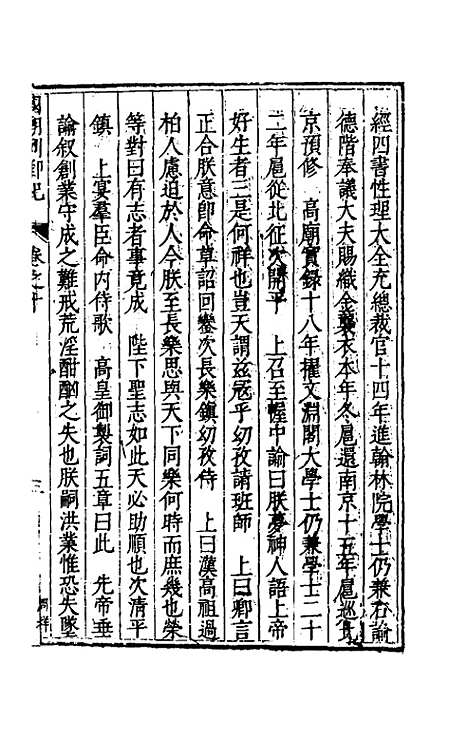 經四書性理大全充總裁官十四年進翰林院學士仍兼右諭
德階奉議大夫賜織金襲衣本年冬扈還南京十五年扈巡北
京預修　高廟實錄十八年擢文淵閣大學士仍兼學士二十
二年扈從北征次開平　上召至幄中諭曰朕夢神人語上帝
好生者三是何祥也豈天謂茲冦乎幼孜請班師　上曰卿言
正合朕意卽命草詔回鑾次長樂鎮幼孜侍　上曰漢高祖過
柏人慮迫於人今朕至長樂思與天下同樂何時而庶幾也榮
等對曰有志者事竟成　陛下聖志如此天必助順也次清平
鎮　上宴羣臣命內侍歌　高皇御製詞五章曰此　先帝垂
諭叙創業守成之難戒荒淫酣酗之失也朕嗣洪業惟恐失墜
國朝列卿紀　卷之十　三